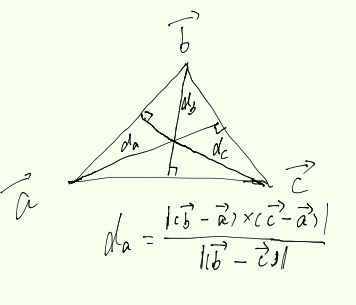 b⃗
d_b
d_a
d_c
a⃗
c⃗
d_a = |(b⃗ - a⃗) × (c⃗ - a⃗)| / |(b⃗ - c⃗)|